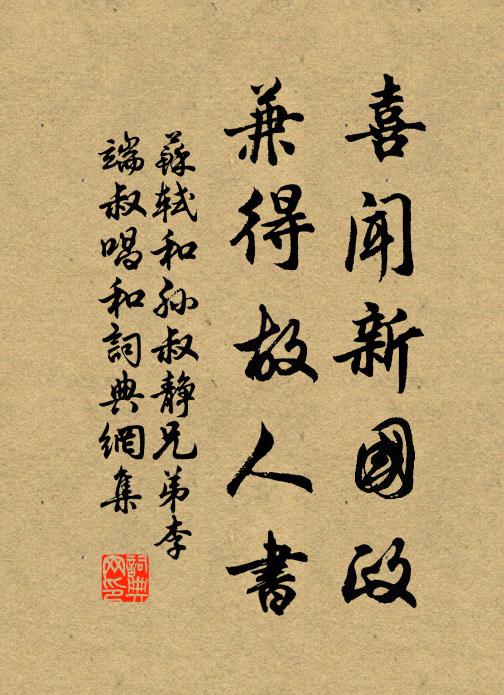 喜聞新國政
兼得故人書
蘇軾和孙叔靜兄弟李
端叔唱和詞典網集
詞典
网印